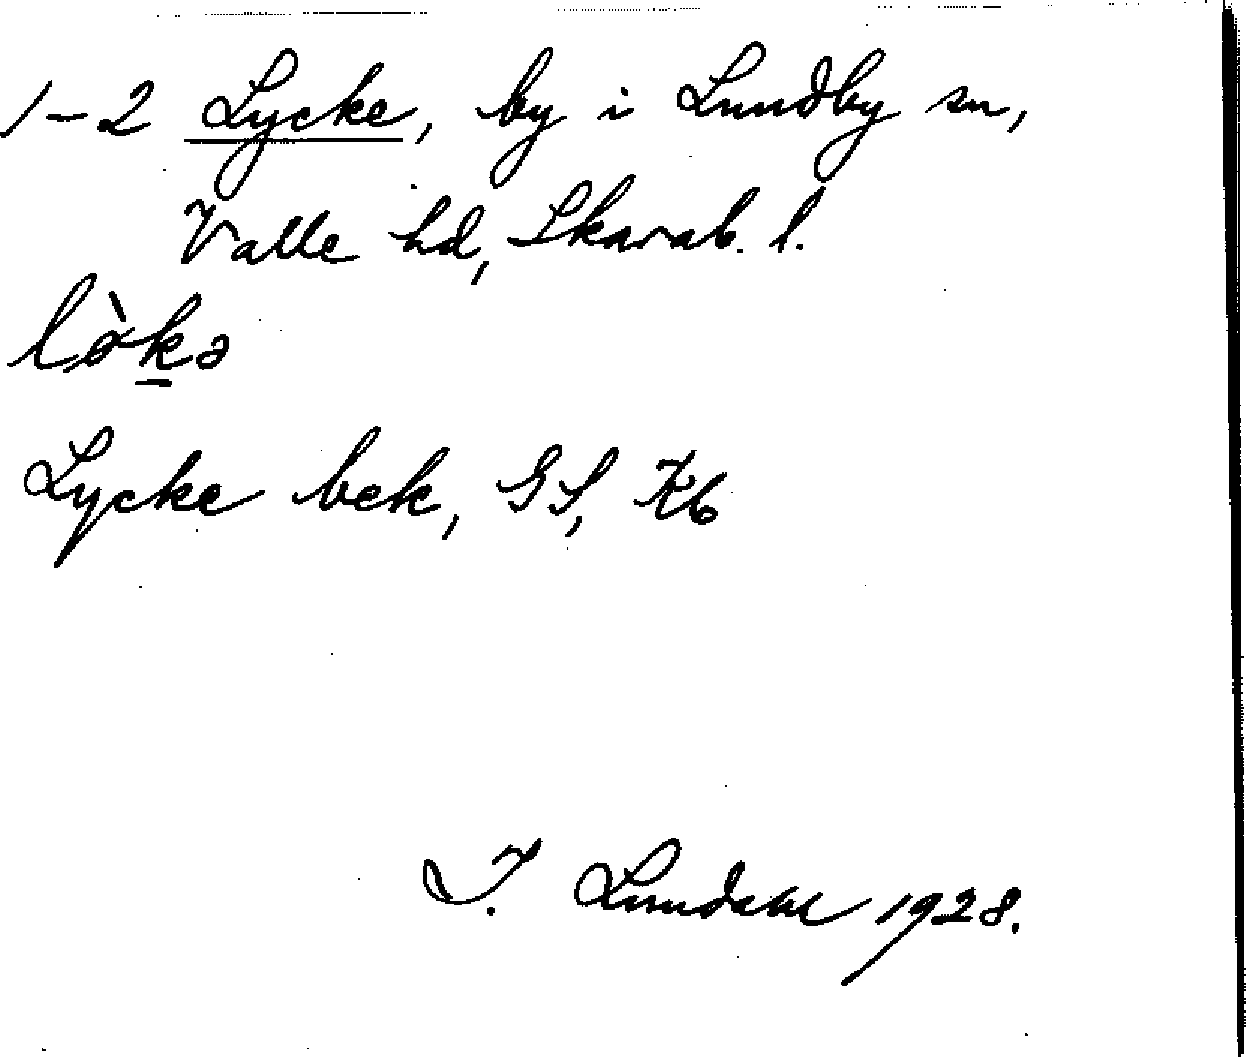 1-2 Lycke, by i Lundby sn,
Valle hd, Skarab. l.
lø̀k̠ə
Lycke bek, GS, Kb
I. Lundahl 1928.